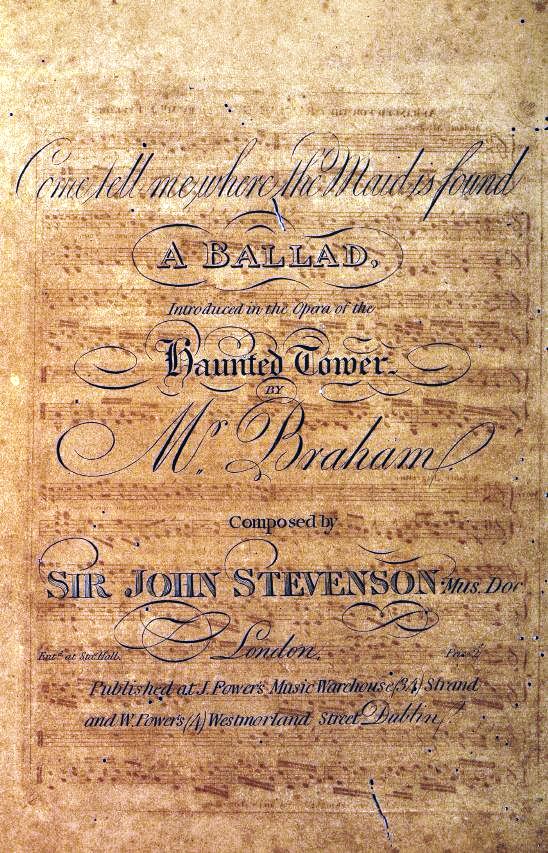 Come, tell me, where the Maid is found
A BALLAD,
Introduced in the Opera of the
Haunted Tower
BY
Mr. Braham.
Composed by
SIR JOHN STEVENSON Mus. Doc
London,
Ent.d at Sta. Hall.
Published at J. Power's Music Warehouse (34) Strand
and W. Power's (4) Westmorland Street Dublin